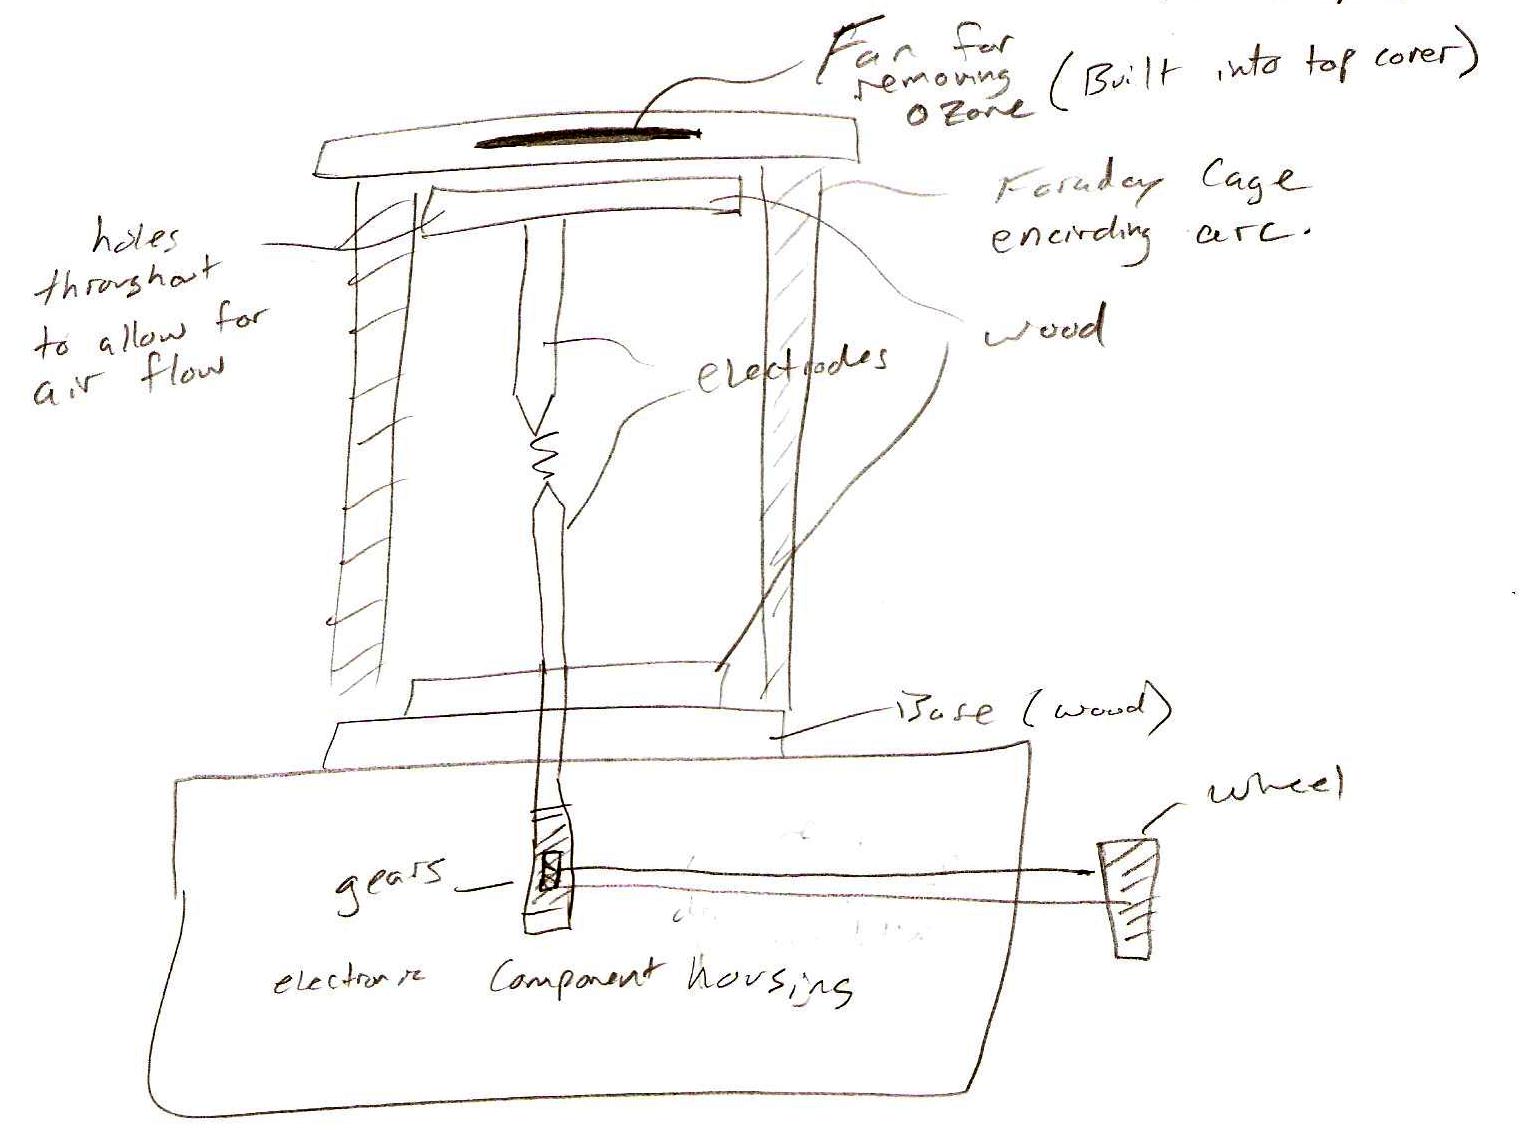 Fan for
removing
Ozone
(Built into top cover)
Faraday Cage
encircling arc.
holes
throughout
to allow for
air flow
wood
electrodes
Base (wood)
wheel
gears
electronic component housing